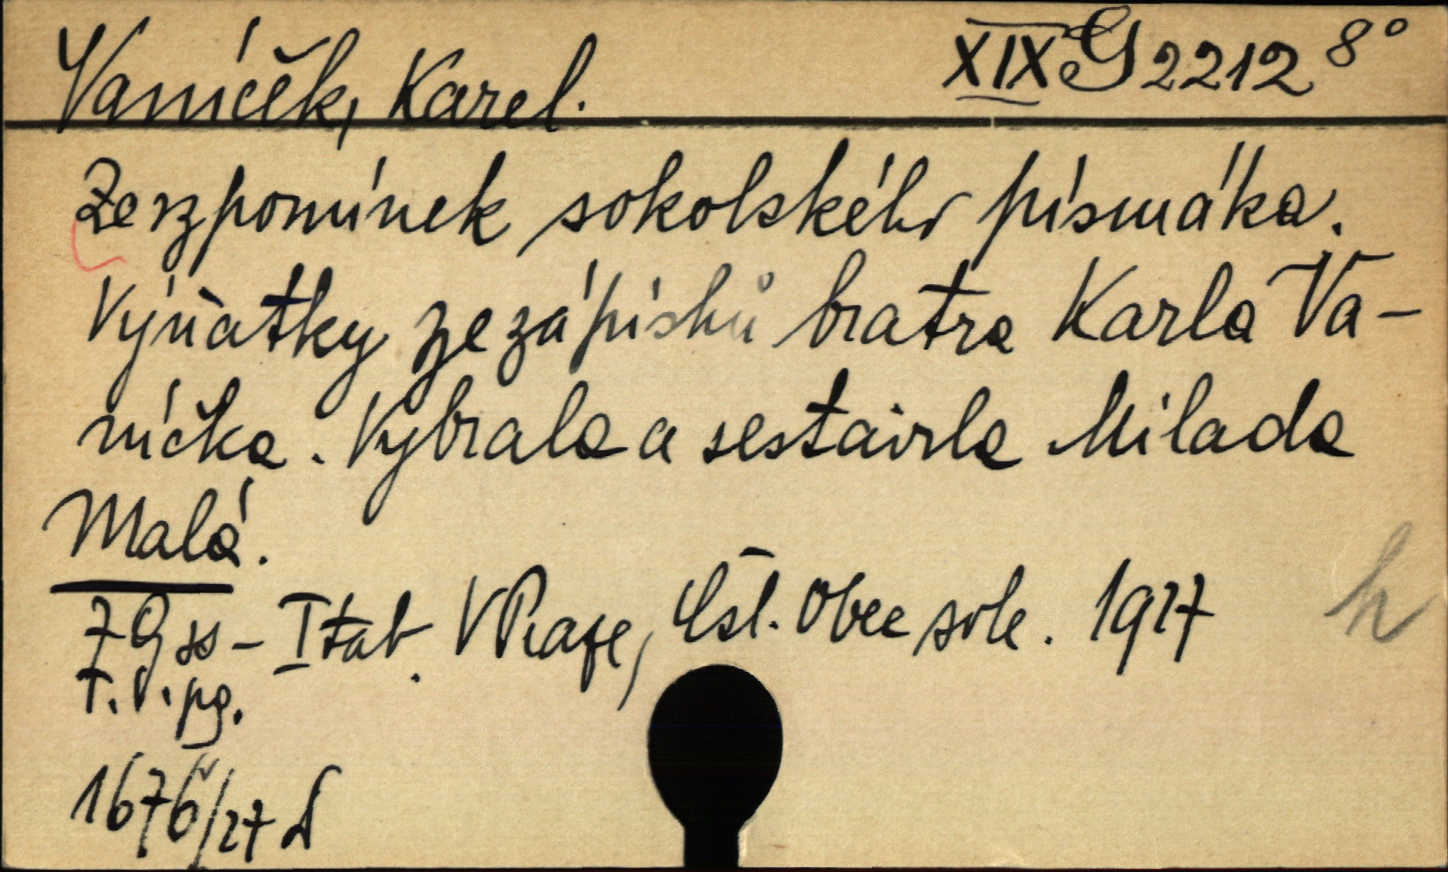 Vaníček, Karel.
XIX G 2212 8°
Ze vzpomínek sokolského písmáka.
Výňatky ze zápisků bratra Karla Va-
níčka. Vybrala a sestavila Milada
Malá.
79 ss – I tab. V Praze, Čsl. Obec sok. 1927
T. V. pg.
1676/27 d
h